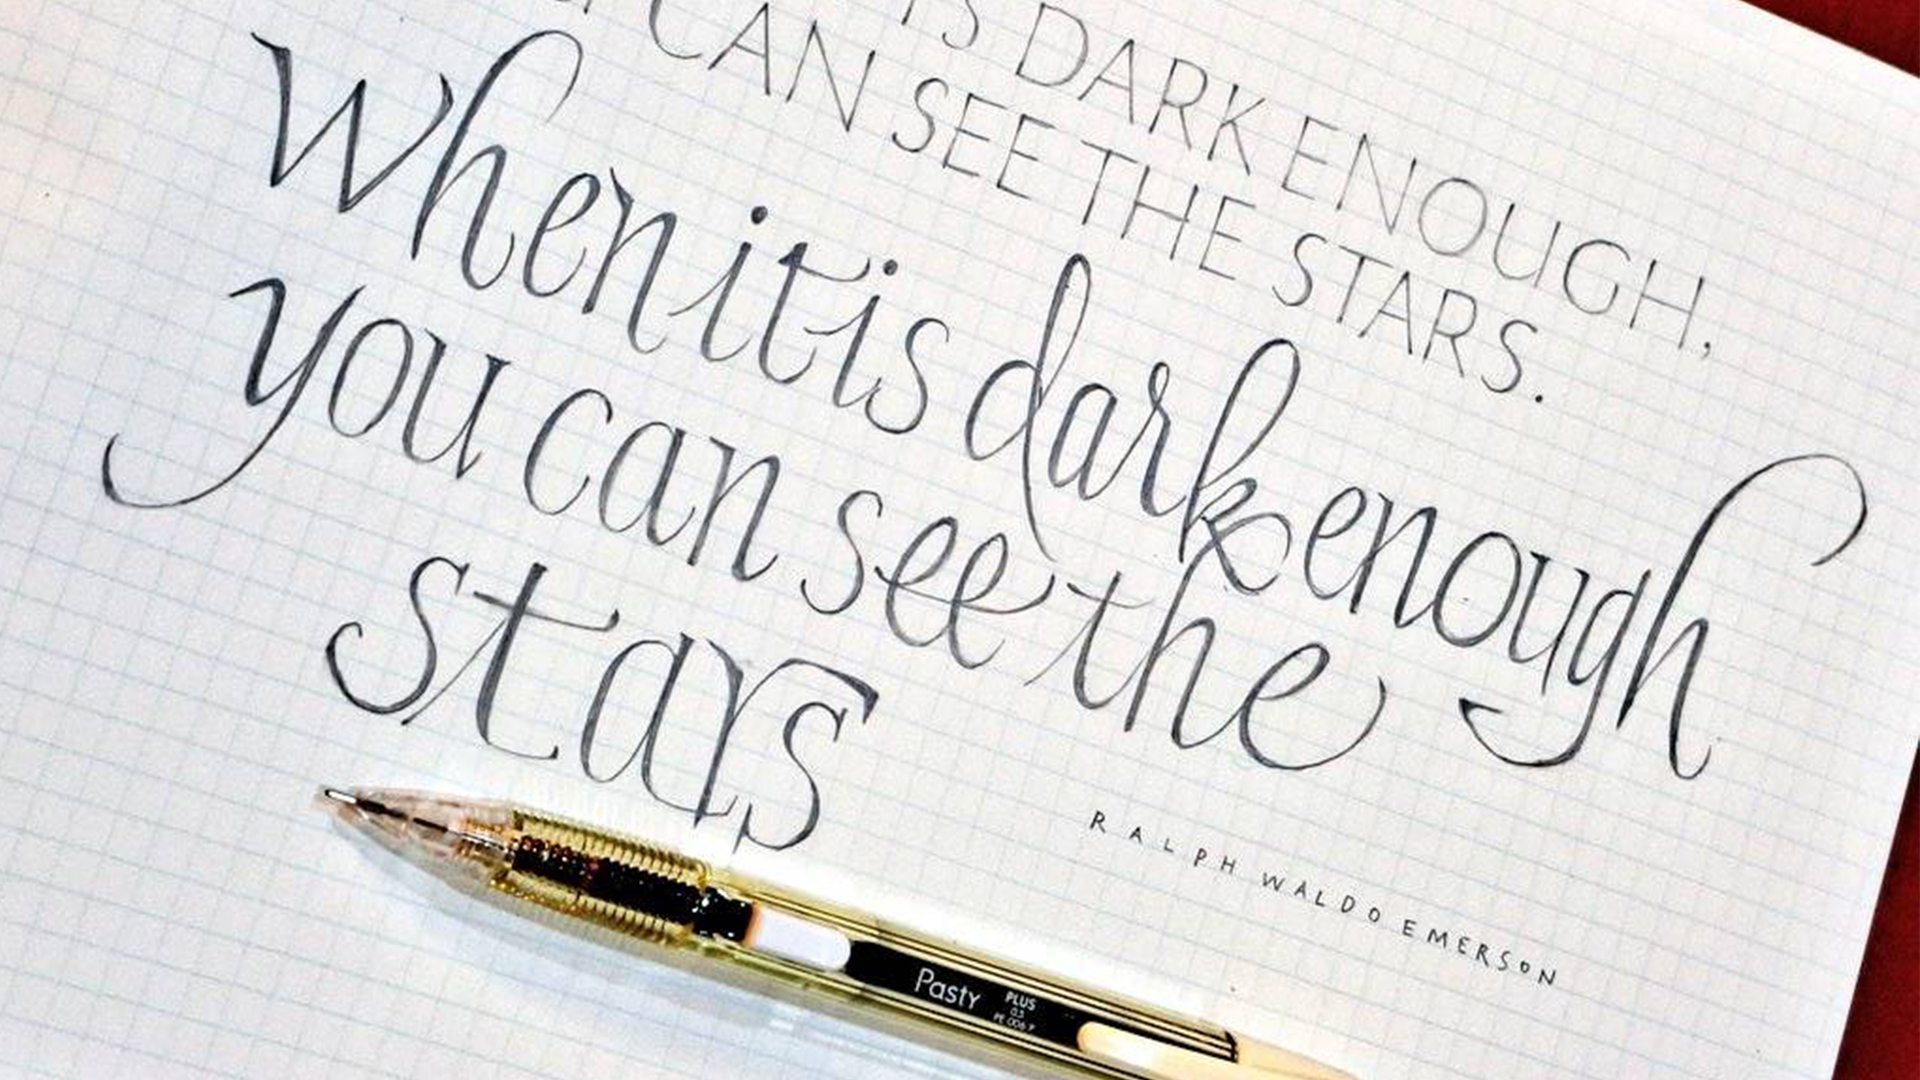 IS DARK ENOUGH,
CAN SEE THE STARS.
When it is dark enough
you can see the
stars
RALPH WALDO EMERSON
Pasty
PLUS
0.5
PE 006 P